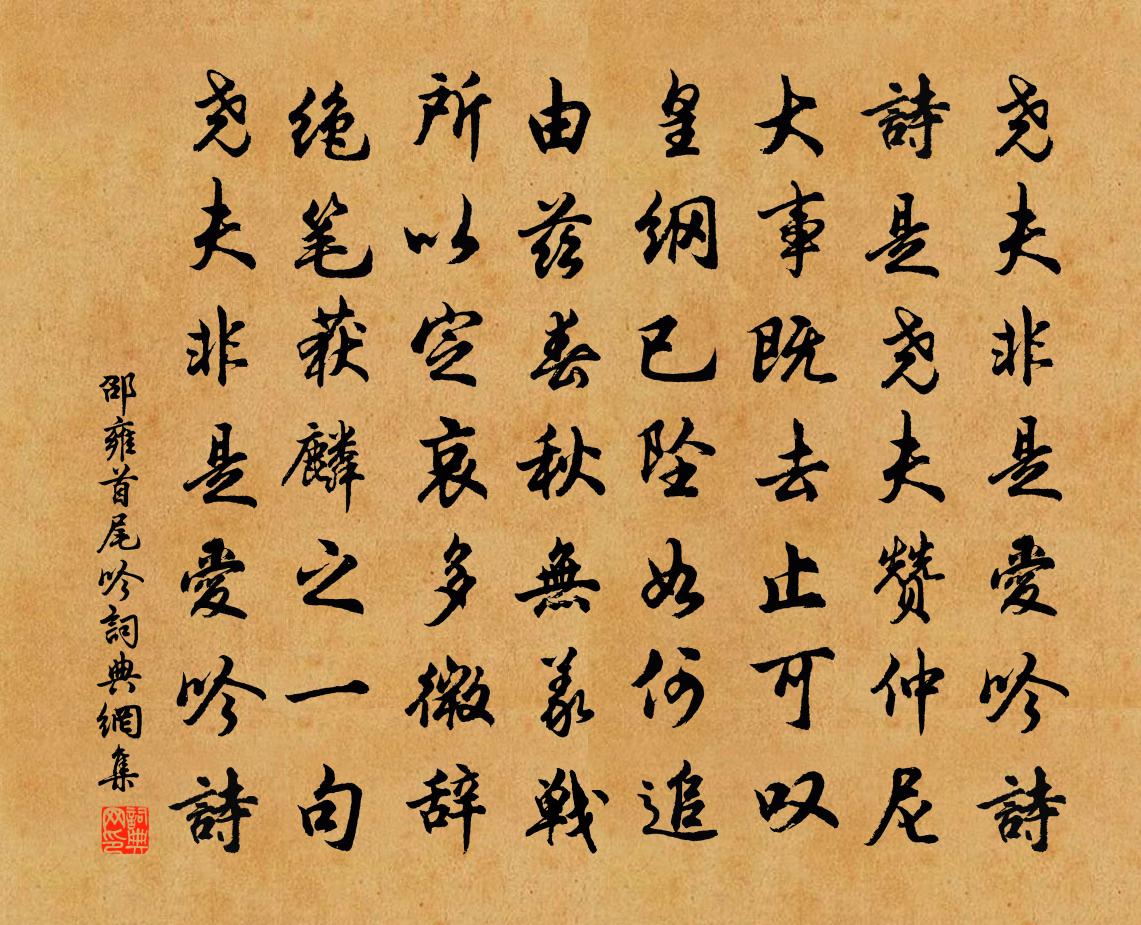 尧夫非是愛吟詩
詩是尧夫赞仲尼
大事既去止可叹
皇纲已坠如何追
由兹春秋無義战
所以定哀多微辞
绝笔获麟之一句
尧夫非是愛吟詩
邵雍首尾吟詞典網集
詞典
网印